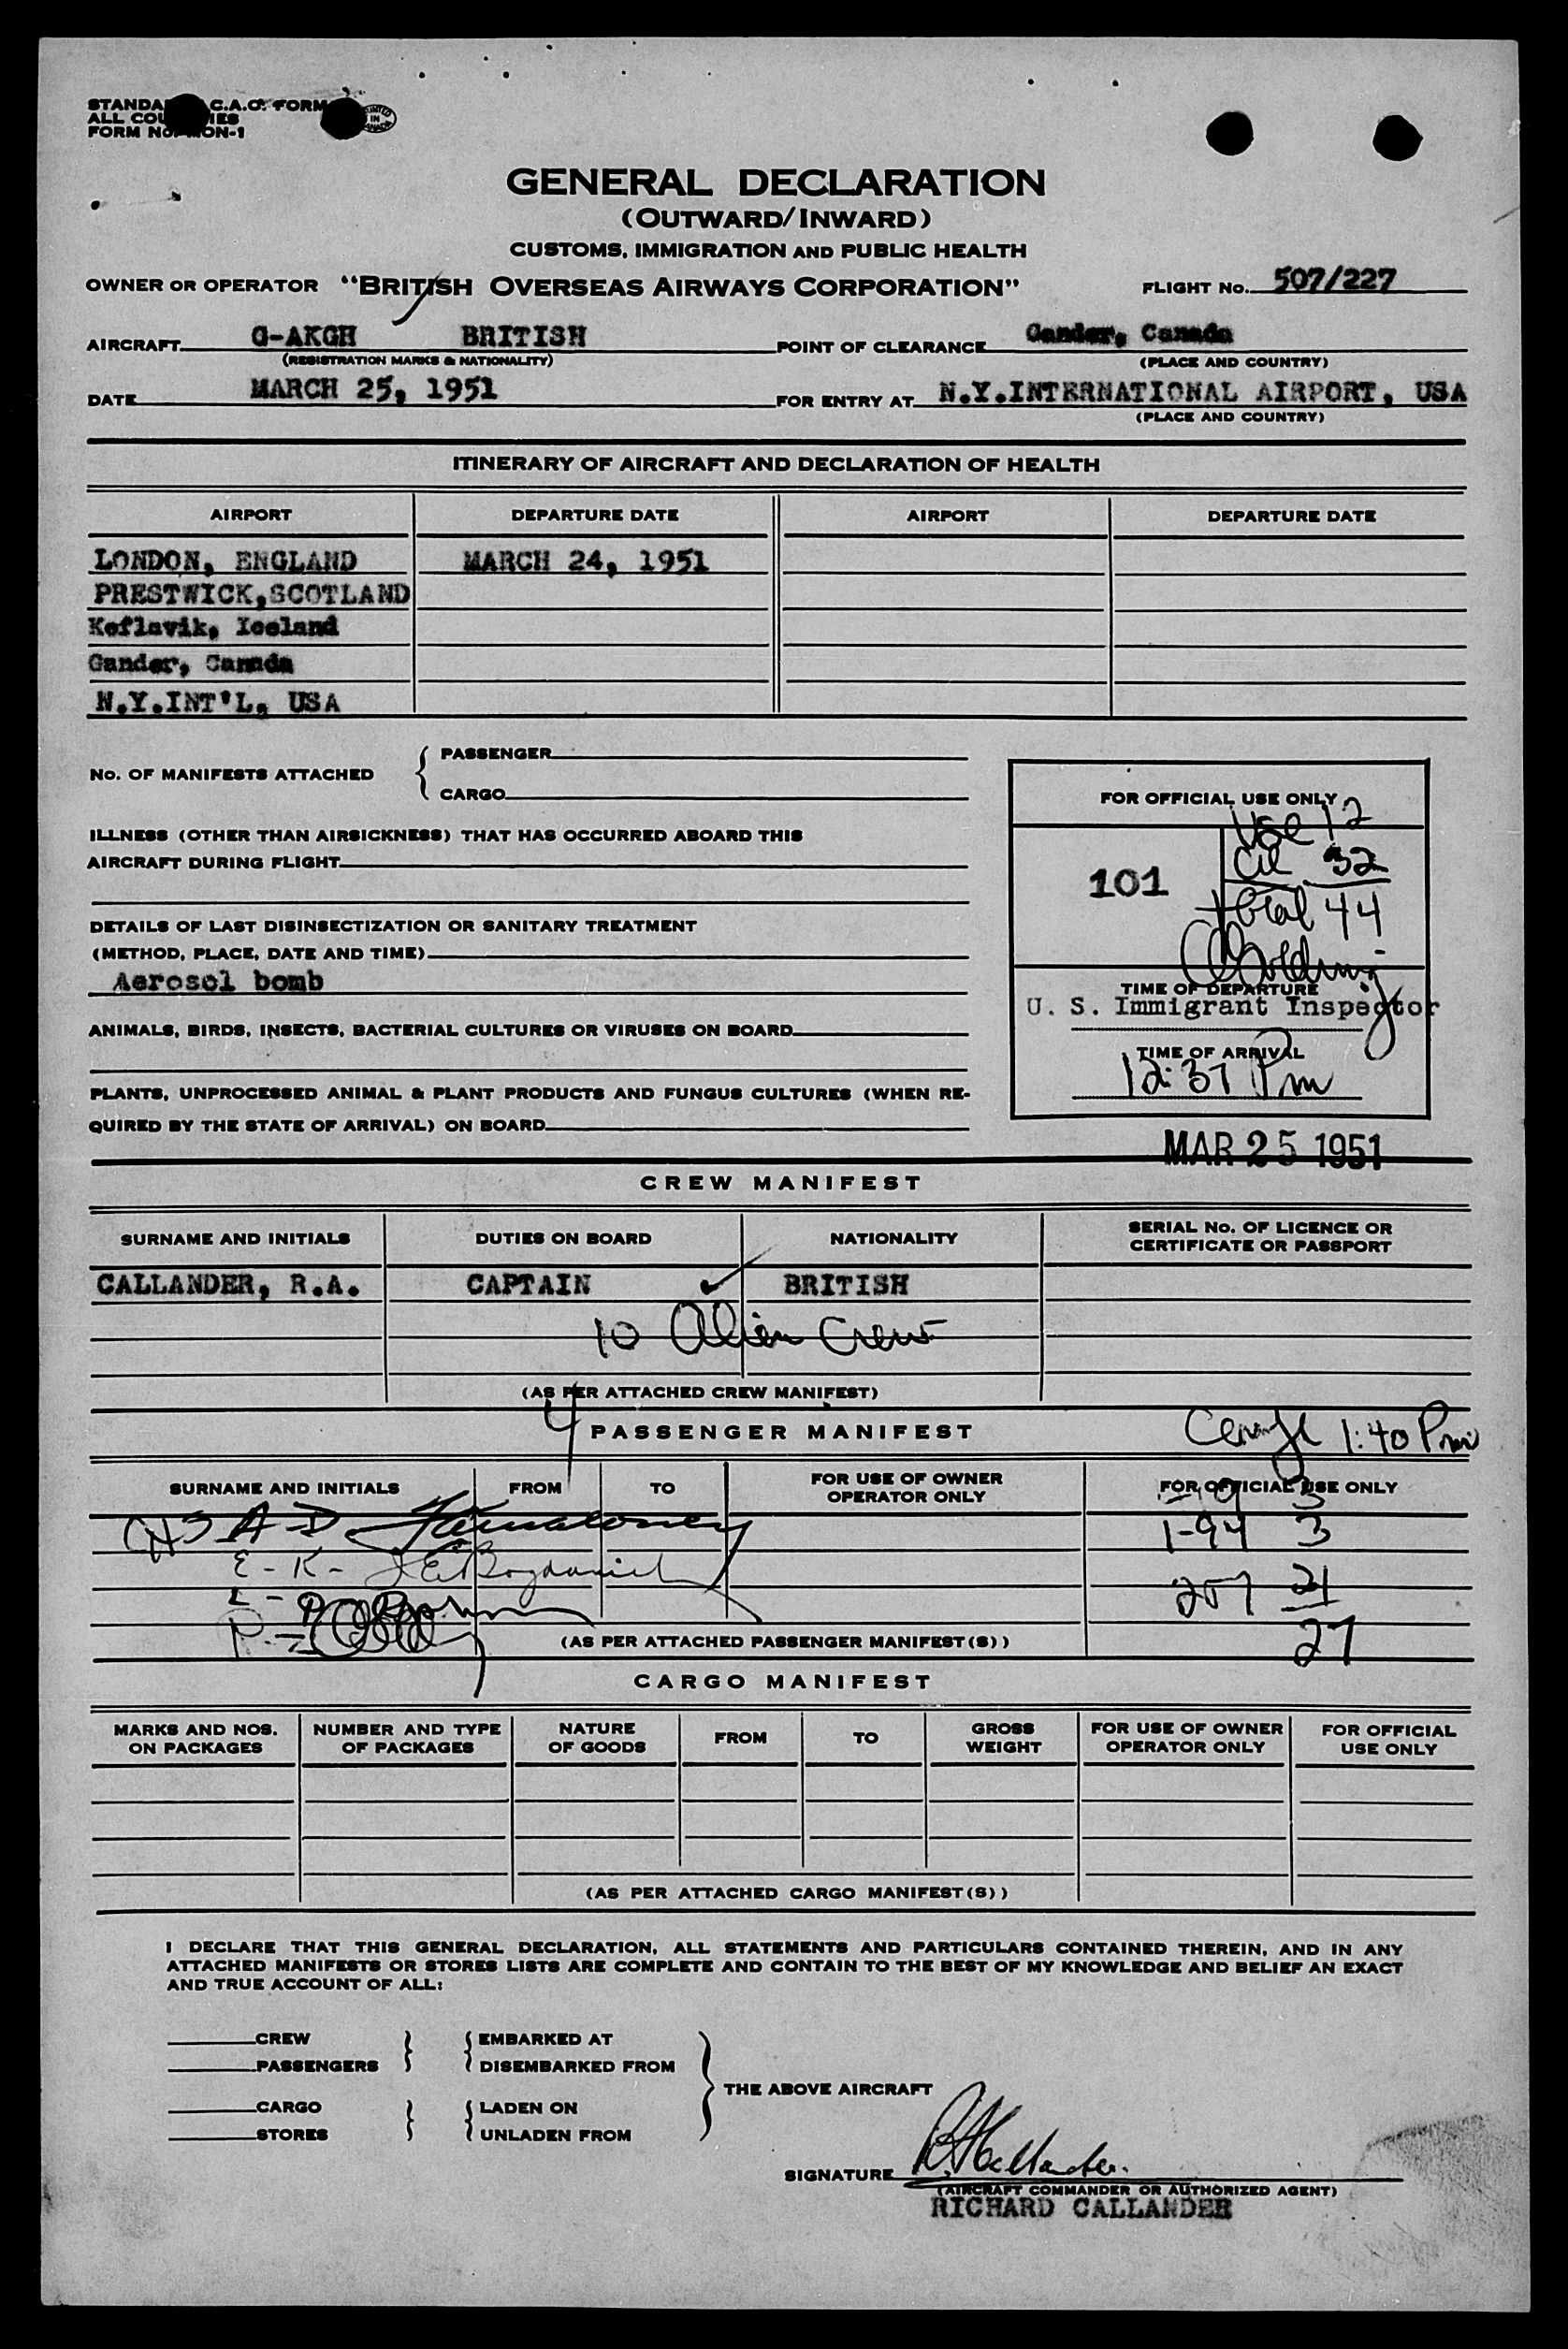 STANDA C.A.O. FORM
ALL COU IES
FORM NO. MON-1
PRINTED IN CANADA
GENERAL DECLARATION
(OUTWARD/INWARD)
CUSTOMS, IMMIGRATION AND PUBLIC HEALTH
OWNER OR OPERATOR "BRITISH OVERSEAS AIRWAYS CORPORATION" FLIGHT NO. 507/227
AIRCRAFT G-AKGH BRITISH POINT OF CLEARANCE Gander, Canada
(REGISTRATION MARKS & NATIONALITY) (PLACE AND COUNTRY)
DATE MARCH 25, 1951 FOR ENTRY AT N.Y.INTERNATIONAL AIRPORT, USA
(PLACE AND COUNTRY)
ITINERARY OF AIRCRAFT AND DECLARATION OF HEALTH
AIRPORT DEPARTURE DATE AIRPORT DEPARTURE DATE
LONDON, ENGLAND MARCH 24, 1951
PRESTWICK,SCOTLAND
Keflavik, Iceland
Gander, Canada
N.Y.INT'L, USA
No. OF MANIFESTS ATTACHED { PASSENGER
CARGO
ILLNESS (OTHER THAN AIRSICKNESS) THAT HAS OCCURRED ABOARD THIS
AIRCRAFT DURING FLIGHT
DETAILS OF LAST DISINSECTIZATION OR SANITARY TREATMENT
(METHOD, PLACE, DATE AND TIME)
Aerosol bomb
ANIMALS, BIRDS, INSECTS, BACTERIAL CULTURES OR VIRUSES ON BOARD
PLANTS, UNPROCESSED ANIMAL & PLANT PRODUCTS AND FUNGUS CULTURES (WHEN RE-
QUIRED BY THE STATE OF ARRIVAL) ON BOARD
FOR OFFICIAL USE ONLY
12
101
32
total 44
TIME OF DEPARTURE
U. S. Immigrant Inspector
TIME OF ARRIVAL
12:37 Pm
MAR 25 1951
CREW MANIFEST
SURNAME AND INITIALS DUTIES ON BOARD NATIONALITY SERIAL No. OF LICENCE OR
CERTIFICATE OR PASSPORT
CALLANDER, R.A. CAPTAIN BRITISH
10 Alien Crew
(AS PER ATTACHED CREW MANIFEST)
4
PASSENGER MANIFEST
1:40 Pm
SURNAME AND INITIALS FROM TO FOR USE OF OWNER
OPERATOR ONLY FOR OFFICIAL USE ONLY
A-D
1-94 3
E - K -
257 21
27
(AS PER ATTACHED PASSENGER MANIFEST(S))
CARGO MANIFEST
MARKS AND NOS.
ON PACKAGES NUMBER AND TYPE
OF PACKAGES NATURE
OF GOODS FROM TO GROSS
WEIGHT FOR USE OF OWNER
OPERATOR ONLY FOR OFFICIAL
USE ONLY
(AS PER ATTACHED CARGO MANIFEST(S))
I DECLARE THAT THIS GENERAL DECLARATION, ALL STATEMENTS AND PARTICULARS CONTAINED THEREIN, AND IN ANY
ATTACHED MANIFESTS OR STORES LISTS ARE COMPLETE AND CONTAIN TO THE BEST OF MY KNOWLEDGE AND BELIEF AN EXACT
AND TRUE ACCOUNT OF ALL:
CREW EMBARKED AT
PASSENGERS DISEMBARKED FROM
THE ABOVE AIRCRAFT
CARGO LADEN ON
STORES UNLADEN FROM
SIGNATURE RACallander.
(AIRCRAFT COMMANDER OR AUTHORIZED AGENT)
RICHARD CALLANDER